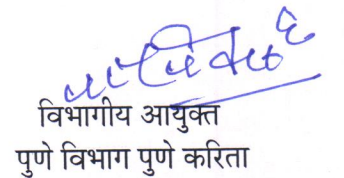 विभागीय आयुक्त
पुणे विभाग पुणे करिता